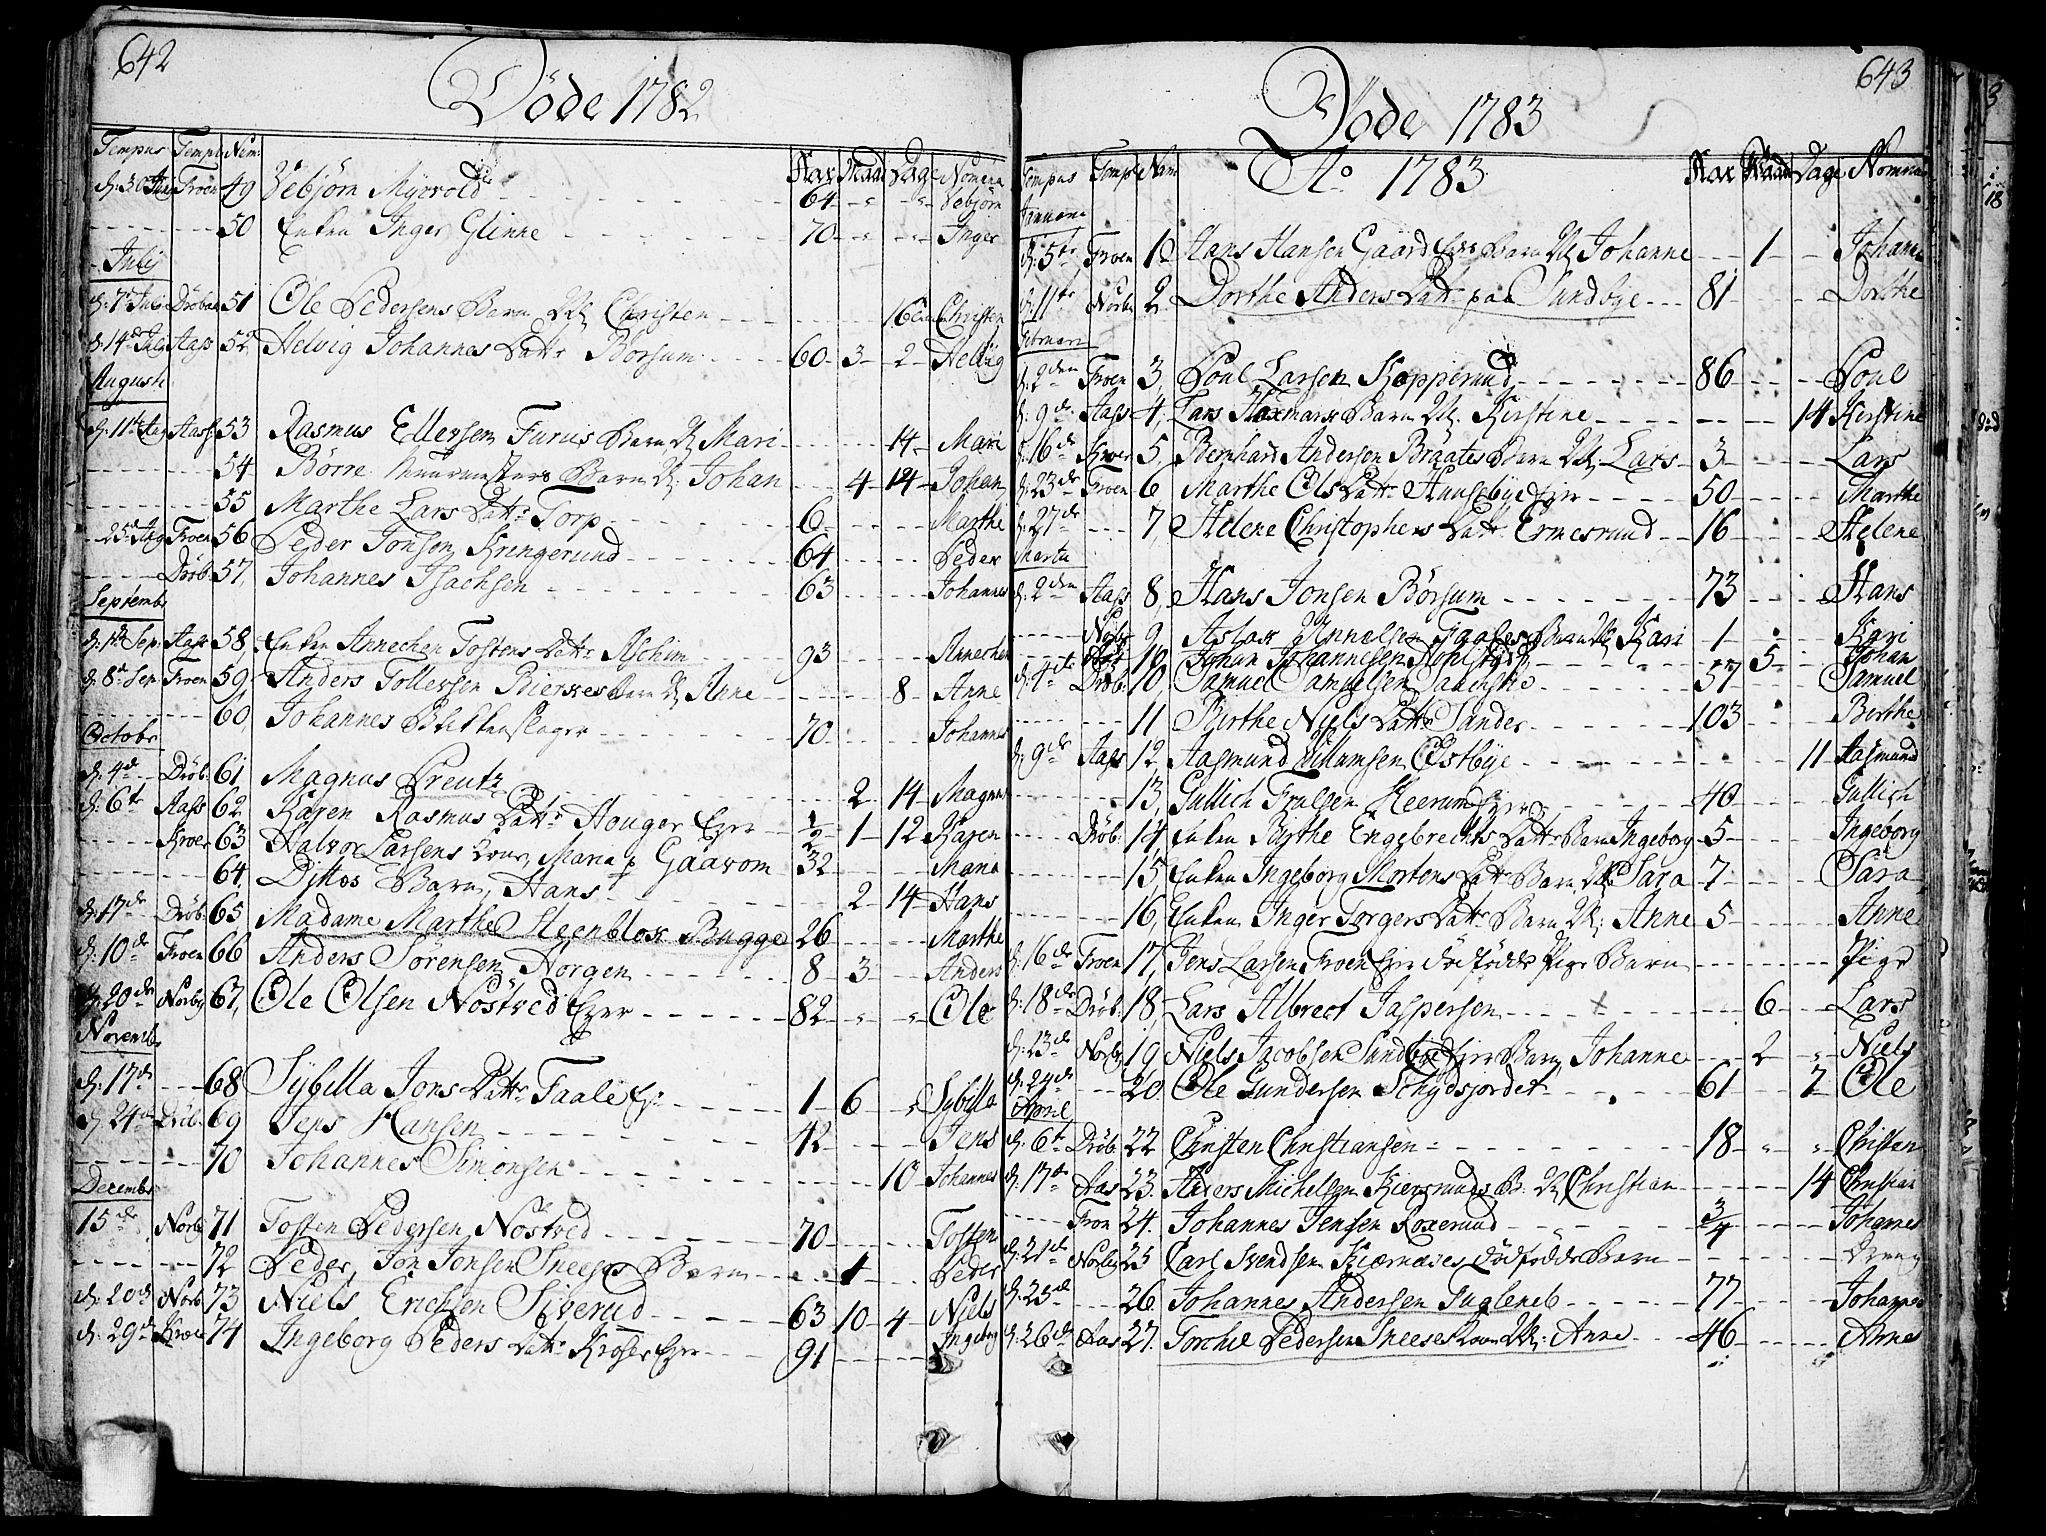 642
Döde 1782
Tempus Templ Num: Aar Maan Dage Nomina
d: 30 Froen 49 Vebjörn Myrvold 64 Vebjörn
50 Enken Inger Glinne 70 Inger
Julij
d: 7de Juli Dröbac 51 Ole Pedersens Barn Christen 16 Christen
d: 14de Aass 52 Helvig Johannes Datr Börsum 60 3 2 Helvig
Augusti
d: 11te Aug Aass: 53 Rasmus Ellersen Furus Barn Mari 14 Mari
54 Börre Muurmesters Barn Johan 4 14 Johan
55 Marthe Lars Datr: Torp 6 Marthe
25de Aug Froen 56 Peder Jonsen Kringerund 64 Peder
Dröb: 57, Johannes Isachsen 63 Johannes
Septembr
d: 1te Sep. Aass 58. Enken Annechen Tostens Datr Aschim 93 Annechen
d: 8de Sep. Froen 59, Anders Tollersen Barn Anne 8 Anne
60, Johannes Blikkenslager 70 Johannes
Octobr
d: 4de Dröb. 61 Magnus Preutz 2 14 Magnus
d: 6te Aass 62 Karen Rasmus Datr: Houger Ejer 1/2 1 12 Karen
Kroer 63 Halvor Larsens Kone, Maria p Gaarom 32 Maria
64, Dittos Barn, Hans 2 14 Hans
d: 17de Dröb. 65 Madame Marthe Steenblok Bugge 26 Marthe
d: 10de Froen 66 Anders Sörensen Norgen 8 3 Anders
d: 20de Norby 67, Ole Olsen Nöstved Ejer 82 Ole
Novembr
d: 17de 68 Sybilla Jons Datr: Faale 1 6 Sybilla
d: 24de Dröb. 69 Jens Hansen 42 Jens
70 Johannes Simonsen 10 Johannes
Decembr
15de Norby 71 Tosten Pedersen Nöstved 70 Tosten
72 Peder, Jon Jonsen Sneeses Barn 1 Peder
d: 20de Norb. 73 Niels Erichsen Siverud 63 10 4 Niels
d: 29de Kroer 74 Ingeborg Peders Datr: Kroser Ejer 91 Ingeborg
643
Döde 1783
Tempus Templ Num Ao 1783 Aar Maan Dage Nomina
Januarii
d: 5te Froen 1 Hans Hansen Gaard Ejer Barn Johanne 1 Johanne
d: 11te Norby 2. Dorthe Anders Datr: paa Sundbye 81 Dorthe
Februarii
d: 2den Froen 3, Poul Larsen Kopperud 86 Poul
d: 9de Aass 4, Lars Barn Kirstine 14 Kirstine
d: 16de Kroer 5, Bernhard Andersen Braates Barn Lars 3 Lars
d: 23de Froen 6, Marthe Ols Datr: Huusebye Ejer 50 Marthe
d: 27de 7, Helene Christophers Datr: Ermesrund 16 Helene
Martii
d: 2den Aass 8, Hans Jonsen Börsum 73 Hans
Norby 9, Aslak Barn Kari 1 Kari
10, Johan Johannesen 5 Johan
d: 4de Dröb. 10, Samuel Samuelsen 57 Samuel
11 Birthe Niels Datr: Sander 103 Birthe
d: 9de Aass 12, Aasmund Östbye 11 Aasmund
13, Gullich Heerum Ejer 40 Gullich
Dröb: 14 Enken Birthe Engebrechts Datr Barn Ingeborg 5 Ingeborg
15, Enken Ingeborg Mortens Datr Barn Sara 7 Sara
16, Enken Inger Torgers Datr: Barn Anne 5 Anne
d: 16de Froen 17, Jens Larsen Froen Ejer dödfödde Pige Barn Pige
d: 18de Dröb. 18, Lars Albrect Jaspersen 6 Lars
d: 23de Norby 19, Niels Jacobsen Sundbye Ejer Barn Johanne 2 Niels
d: 24de 20. Ole Gundersen Schydsjordet 61 7 Ole
April
d: 6te Dröb. 22 Christen Christiansen 18 Christen
d: 17de Aas 23. Anders Michelsen Kiersruds B. Christian 14 Christian
Fron 24. Johannes Jensen Roxerud 3/4 Johannes
d: 21de Norby 25 Carl Svendsen Kiærnæses Dödfödde Barn Dreng
d: 25de 26. Johannes Andersen Fugleneb 77 Johannes
d: 26de Aas 27. Torchil Pedersen Sneeses Kone Anne 46 Anne